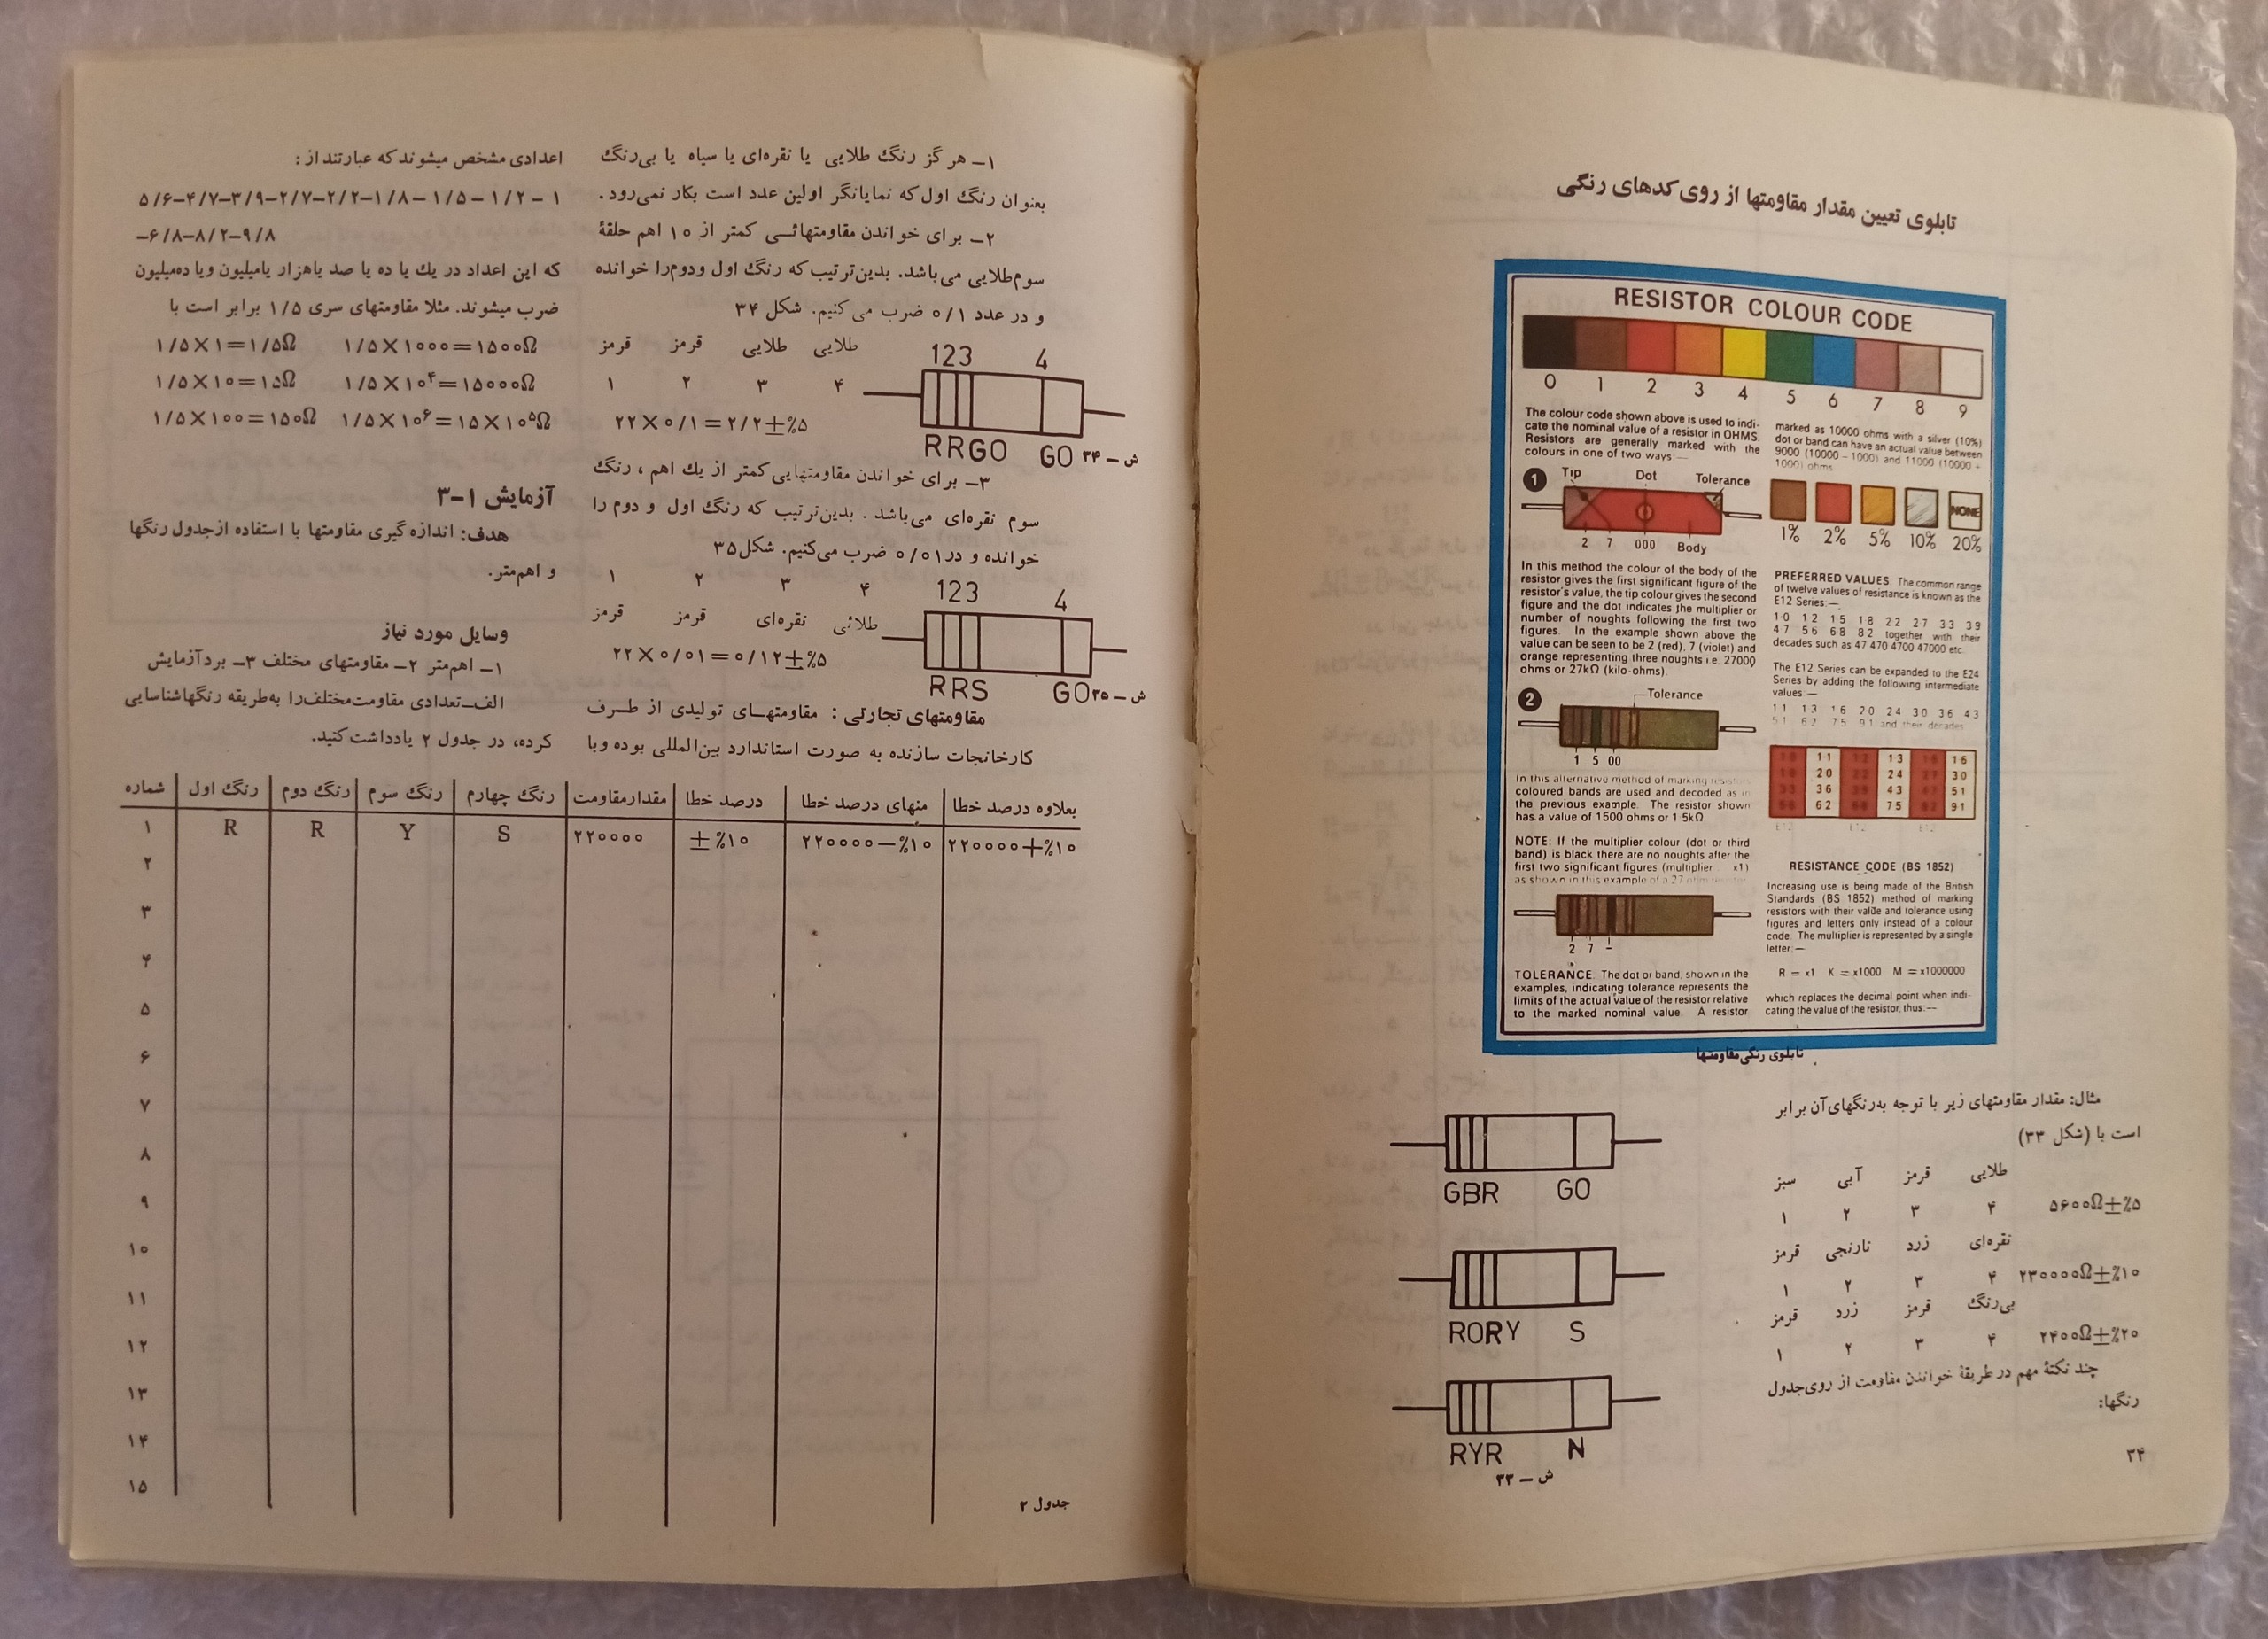 تابلوی تعیین مقدار مقاومتها از روی کدهای رنگی
RESISTOR COLOUR CODE
0 1 2 3 4 5 6 7 8 9
The colour code shown above is used to indi-
cate the nominal value of a resistor in OHMS.
Resistors are generally marked with the
colours in one of two ways:—
1
Tip Dot Tolerance
2 7 000 Body
In this method the colour of the body of the
resistor gives the first significant figure of the
resistor's value, the tip colour gives the second
figure and the dot indicates the multiplier or
number of noughts following the first two
figures. In the example shown above the
value can be seen to be 2 (red), 7 (violet) and
orange representing three noughts i.e. 27000
ohms or 27kΩ (kilo-ohms).
2
Tolerance
1 5 00
In this alternative method of marking resistors
coloured bands are used and decoded as in
the previous example. The resistor shown
has a value of 1500 ohms or 1 5kΩ
NOTE: If the multiplier colour (dot or third
band) is black there are no noughts after the
first two significant figures (multiplier x1)
as shown in this example of a 27 ohm resistor
2 7 –
TOLERANCE. The dot or band, shown in the
examples, indicating tolerance represents the
limits of the actual value of the resistor relative
to the marked nominal value. A resistor
marked as 10000 ohms with a silver (10%)
dot or band can have an actual value between
9000 (10000 – 1000) and 11000 (10000 +
1000) ohms
NONE
1% 2% 5% 10% 20%
PREFERRED VALUES. The common range
of twelve values of resistance is known as the
E12 Series:—
10 12 15 18 22 27 33 39
47 56 68 82 together with their
decades such as 47 470 4700 47000 etc.
The E12 Series can be expanded to the E24
Series by adding the following intermediate
values:—
11 13 16 20 24 30 36 43
51 62 75 91 and their decades
10 11 12 13 15 16
18 20 22 24 27 30
33 36 39 43 47 51
56 62 68 75 82 91
E12 E12 E12
RESISTANCE CODE (BS 1852)
Increasing use is being made of the British
Standards (BS 1852) method of marking
resistors with their value and tolerance using
figures and letters only instead of a colour
code. The multiplier is represented by a single
letter:—
R = x1 K = x1000 M = x1000000
which replaces the decimal point when indi-
cating the value of the resistor, thus:—
تابلوی رنگی مقاومتها
مثال: مقدار مقاومتهای زیر با توجه به رنگهای آن برابر
است با (شکل ۳۳)
سبز آبی قرمز طلایی
۱ ۲ ۳ ۴ ۵۶۰۰Ω±٪۵
قرمز نارنجی زرد نقره‌ای
۱ ۲ ۳ ۴ ۲۳۰۰۰۰Ω±٪۱۰
قرمز زرد قرمز بی‌رنگ
۱ ۲ ۳ ۴ ۲۴۰۰Ω±٪۲۰
GBR GO
RORY S
RYR N
ش – ۳۳
چند نکتهٔ مهم در طریقهٔ خواندن مقاومت از روی جدول
رنگها:
۳۴
۱– هر گز رنگ طلایی یا نقره‌ای یا سیاه یا بی‌رنگ
بعنوان رنگ اول که نمایانگر اولین عدد است بکار نمی‌رود.
۲– برای خواندن مقاومتهائی کمتر از ۱۰ اهم حلقهٔ
سوم طلایی می‌باشد. بدین‌ترتیب که رنگ اول و دوم را خوانده
و در عدد ۰/۱ ضرب می کنیم. شکل ۳۴
قرمز قرمز طلایی طلایی
۱ ۲ ۳ ۴
۲۲×۰/۱=۲/۲±٪۵
123 4
RRGO GO
ش – ۳۴
۳– برای خواندن مقاومتهایی کمتر از یك اهم، رنگ
سوم نقره‌ای می‌باشد. بدین‌ترتیب که رنگ اول و دوم را
خوانده و در ۰/۰۱ ضرب می‌کنیم. شکل ۳۵
۱ ۲ ۳ ۴
قرمز قرمز نقره‌ای طلائی
۲۲×۰/۰۱=۰/۱۲±٪۵
123 4
RRS GO
ش – ۳۵
مقاومتهای تجارتی: مقاومتهای تولیدی از طرف
کارخانجات سازنده به صورت استاندارد بین‌المللی بوده و با
اعدادی مشخص میشوند که عبارتند از:
۱ – ۱/۲ – ۱/۵ – ۱/۸–۲/۲–۲/۷–۳/۹–۴/۷–۵/۶
–۶/۸–۸/۲–۹/۸
که این اعداد در یك یا ده یا صد یاهزار یامیلیون ویا ده‌میلیون
ضرب میشوند. مثلا مقاومتهای سری ۱/۵ برابر است با
۱/۵×۱=۱/۵Ω ۱/۵×۱۰۰۰=۱۵۰۰Ω
۱/۵×۱۰=۱۵Ω ۱/۵×۱۰⁴=۱۵۰۰۰Ω
۱/۵×۱۰۰=۱۵۰Ω ۱/۵×۱۰⁶=۱۵×۱۰⁵Ω
آزمایش ۱–۳
هدف: اندازه گیری مقاومتها با استفاده از جدول رنگها
و اهم‌متر.
وسایل مورد نیاز
۱– اهم‌متر ۲– مقاومتهای مختلف ۳– برد آزمایش
الف–تعدادی مقاومت‌مختلف‌را به‌طریقه رنگهاشناسایی
کرده، در جدول ۲ یادداشت کنید.
شماره رنگ اول رنگ دوم رنگ سوم رنگ چهارم مقدار مقاومت درصد خطا منهای درصد خطا بعلاوه درصد خطا
۱ R R Y S ۲۲۰۰۰۰ ±٪۱۰ ۲۲۰۰۰۰–٪۱۰ ۲۲۰۰۰۰+٪۱۰
۲
۳
۴
۵
۶
۷
۸
۹
۱۰
۱۱
۱۲
۱۳
۱۴
۱۵
جدول ۲